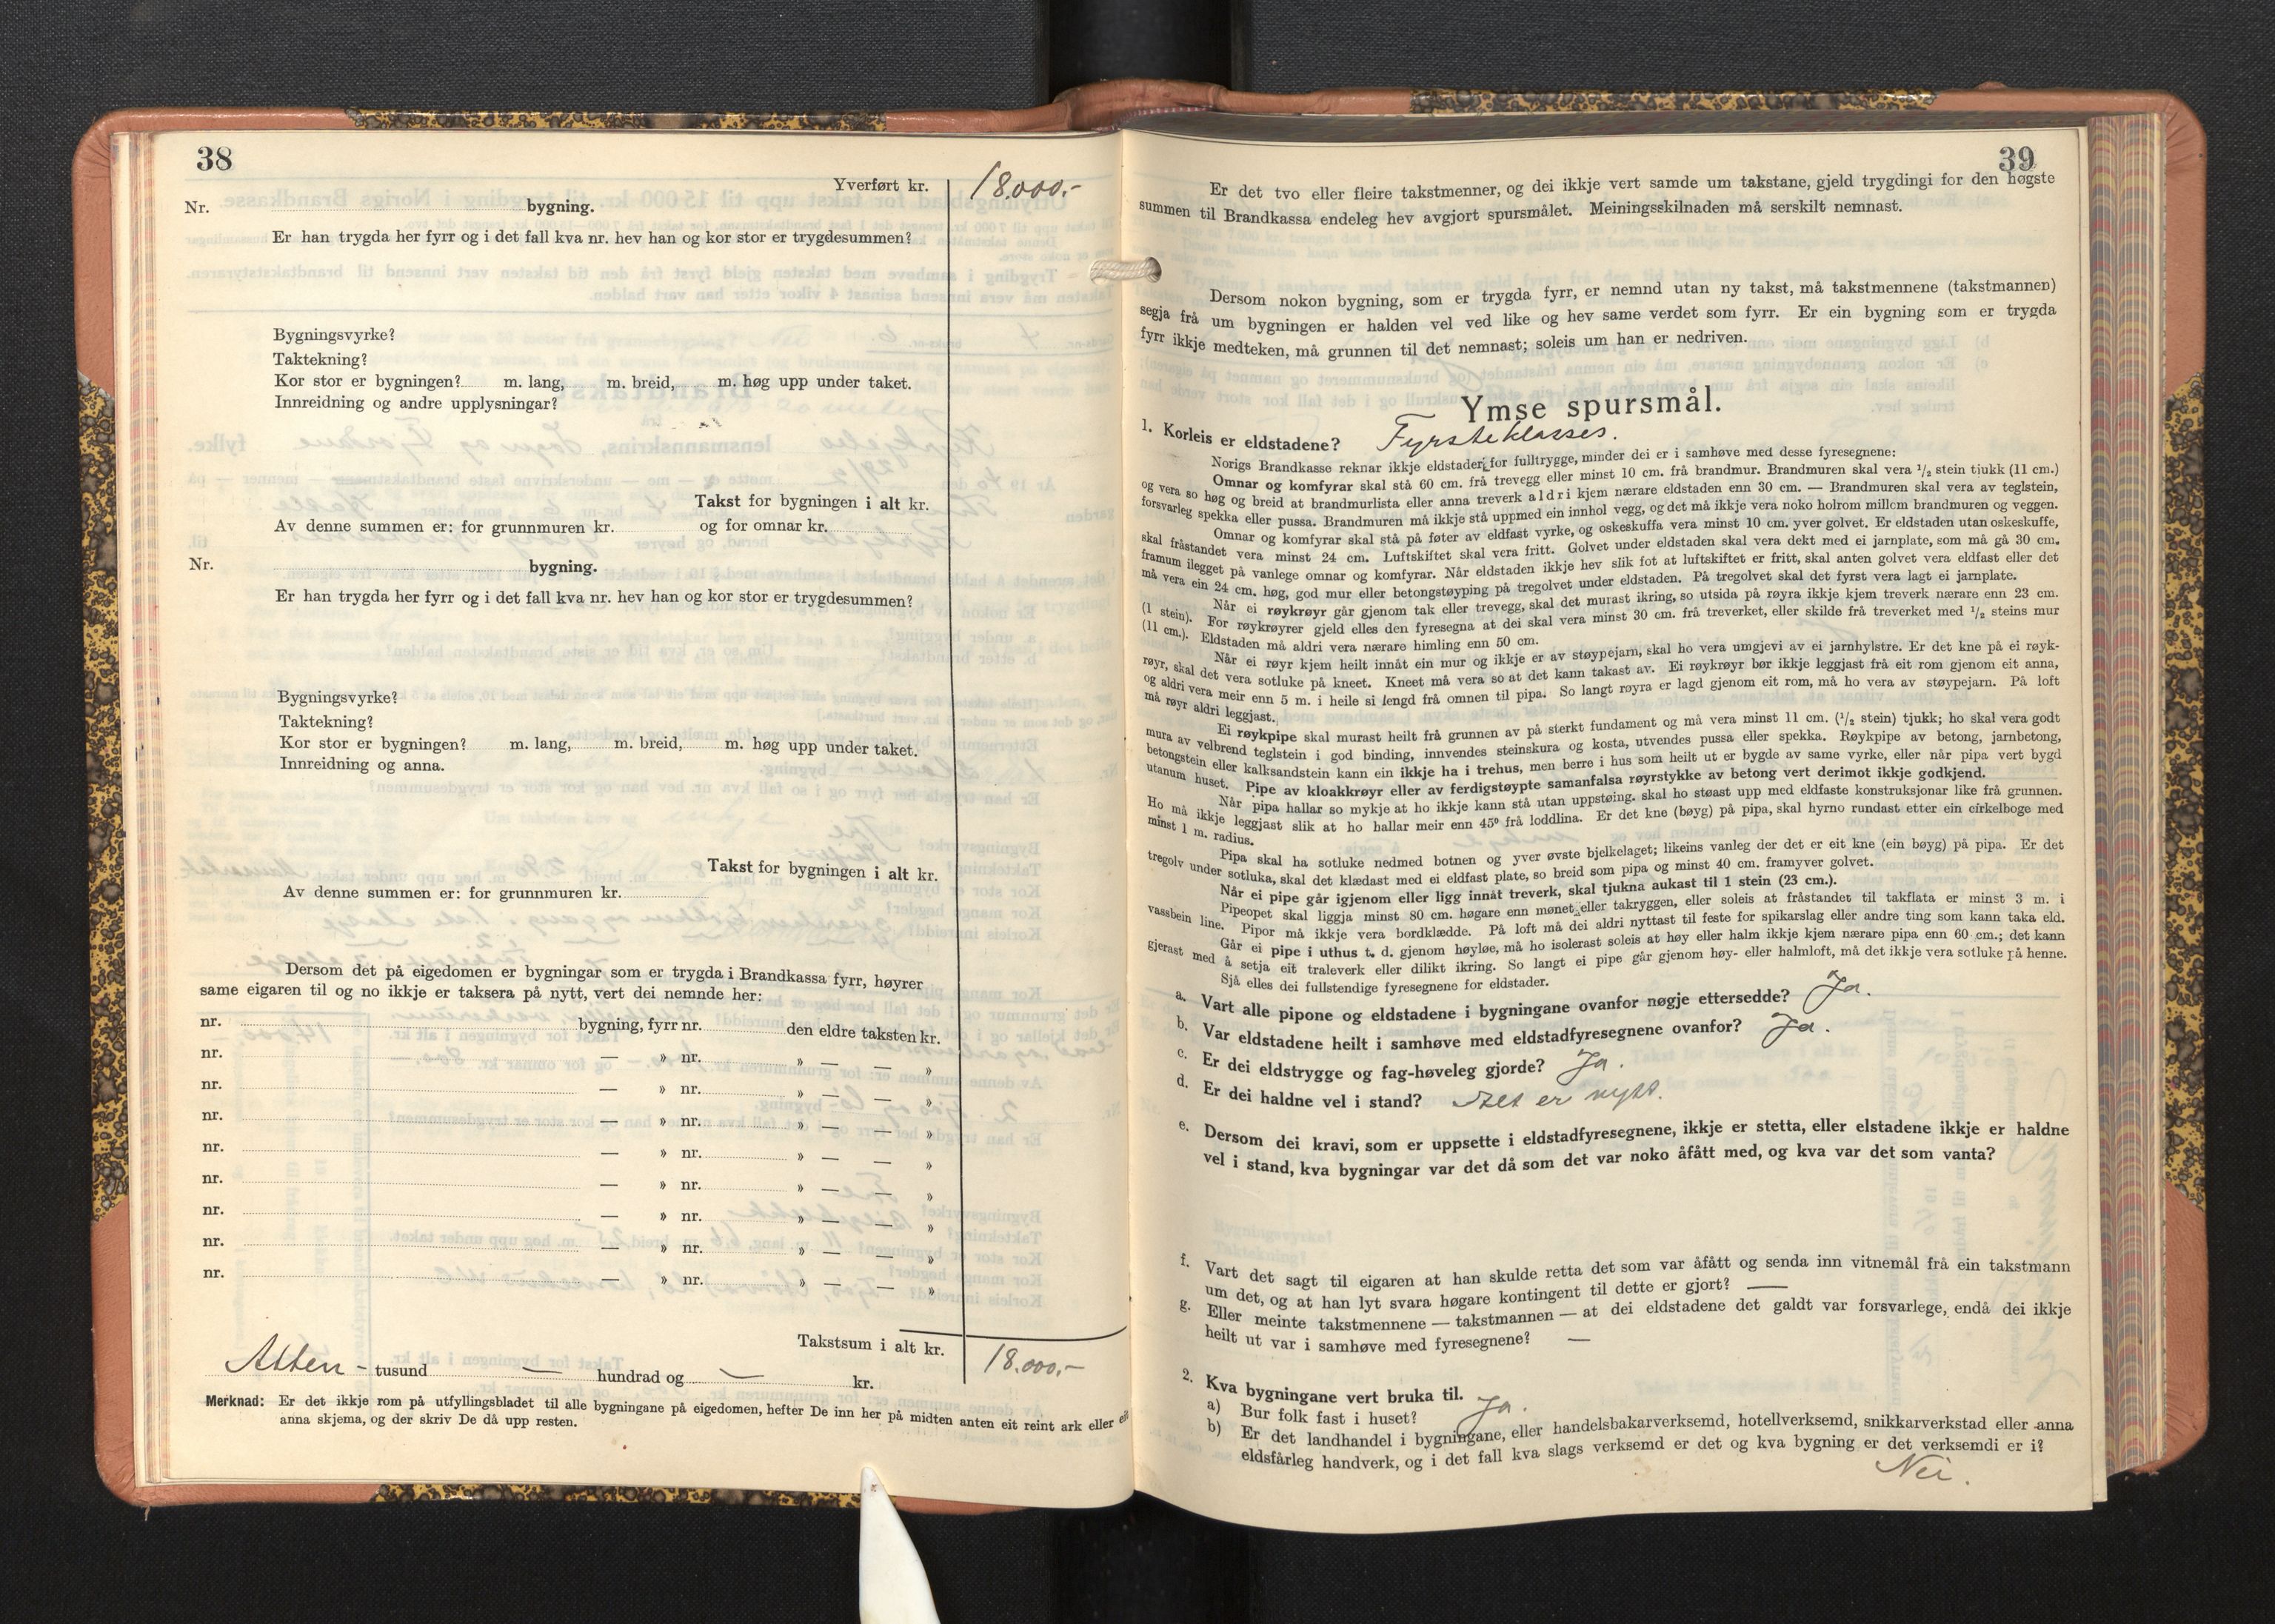 38
Yverført kr. 18.000,-
Nr. bygning.
Er han trygda her fyrr og i det fall kva nr. hev han og kor stor er trygdesummen?
Bygningsvyrke?
Taktekning?
Kor stor er bygningen? m. lang, m. breid, m. høg upp under taket.
Innreidning og andre upplysningar?
Takst for bygningen i alt kr.
Av denne summen er: for grunnmuren kr. og for omnar kr.
Nr. bygning.
Er han trygda her fyrr og i det fall kva nr. hev han og kor stor er trygdesummen?
Bygningsvyrke?
Taktekning?
Kor stor er bygningen? m. lang, m. breid, m. høg upp under taket.
Innreidning og anna.
Takst for bygningen i alt kr.
Av denne summen er: for grunnmuren kr.
Dersom det på eigedomen er bygningar som er trygda i Brandkassa fyrr, høyrer
same eigaren til og no ikkje er taksera på nytt, vert dei nemnde her:
nr. bygning, fyrr nr. den eldre taksten kr.
nr. — » nr. » — — »
nr. — » nr. » — — »
nr. — » nr. » — — »
nr. — » nr. » — — »
nr. — » nr. » — — »
nr. — » nr. » — — »
nr. — » nr. » — — »
nr. — » nr. » — — »
Takstsum i alt kr. 18.000,-
Atten - tusund — hundrad og — kr.
Merknad: Er det ikkje rom på utfyllingsbladet til alle bygningane på eigedomen, hefter De inn her på midten anten eit reint ark eller eit
anna skjema, og der skriv De då upp resten.
39
Er det tvo eller fleire takstmenner, og dei ikkje vert samde um takstane, gjeld trygdingi for den høgste
summen til Brandkassa endeleg hev avgjort spursmålet. Meiningsskilnaden må serskilt nemnast.
Dersom nokon bygning, som er trygda fyrr, er nemnd utan ny takst, må takstmennene (takstmannen)
segja frå um bygningen er halden vel ved like og hev same verdet som fyrr. Er ein bygning som er trygda
fyrr ikkje medteken, må grunnen til det nemnast; soleis um han er nedriven.
Ymse spursmål.
1. Korleis er eldstadene? Fyrsteklasses.
Norigs Brandkasse reknar ikkje eldstader for fulltrygge, minder dei er i samhøve med desse fyresegnene:
Omnar og komfyrar skal stå 60 cm. frå trevegg eller minst 10 cm. frå brandmur. Brandmuren skal vera 1/2 stein tjukk (11 cm.)
og vera so høg og breid at brandmurlista eller anna treverk aldri kjem nærare eldstaden enn 30 cm. — Brandmuren skal vera av teglstein,
forsvarleg spekka eller pussa. Brandmuren må ikkje stå uppmed ein innhol vegg, og det må ikkje vera noko holrom millom brandmuren og veggen.
Omnar og komfyrar skal stå på føter av eldfast vyrke, og oskeskuffa vera minst 10 cm. yver golvet. Er eldstaden utan oskeskuffe,
skal fråstandet vera minst 24 cm. Luftskiftet skal vera fritt. Golvet under eldstaden skal vera dekt med ei jarnplate, som må gå 30 cm.
framum ilegget på vanlege omnar og komfyrar. Når eldstaden ikkje hev slik fot at luftskiftet er fritt, skal anten golvet vera eldfast eller det
må vera ein 24 cm. høg, god mur eller betongstøyping på tregolvet under eldstaden. På tregolvet skal det fyrst vera lagt ei jarnplate.
Når ei røykrøyr går gjenom tak eller trevegg, skal det murast ikring, so utsida på røyra ikkje kjem treverk nærare enn 23 cm.
(1 stein). For røykrøyrer gjeld elles den fyresegna at dei skal vera minst 30 cm. frå treverket, eller skilde frå treverket med 1/2 steins mur
(11 cm.). Eldstaden må aldri vera nærare himling enn 50 cm.
Når ei røyr kjem heilt innåt ein mur og ikkje er av støypejarn, skal ho vera umgjevi av ei jarnhylstre. Er det kne på ei røyk-
røyr, skal det vera sotluke på kneet. Kneet må vera so at det kann takast av. Ei røykrøyr bør ikkje leggjast frå eit rom gjenom eit anna,
og aldri vera meir enn 5 m. i heile si lengd frå omnen til pipa. So langt røyra er lagd gjenom eit rom, må ho vera av støypejarn. På loft
må røyr aldri leggjast.
Ei røykpipe skal murast heilt frå grunnen av på sterkt fundament og må vera minst 11 cm. (1/2 stein) tjukk; ho skal vera godt
mura av velbrend teglstein i god binding, innvendes steinskura og kosta, utvendes pussa eller spekka. Røykpipe av betong, jarnbetong,
betongstein eller kalksandstein kann ein ikkje ha i trehus, men berre i hus som heilt ut er bygde av same vyrke, eller når pipa vert bygd
utanum huset. Pipe av kloakkrøyr eller av ferdigstøypte samanfalsa røyrstykke av betong vert derimot ikkje godkjend.
Når pipa hallar so mykje at ho ikkje kann stå utan uppstøing. skal ho støast upp med eldfaste konstruksjonar like frå grunnen.
Ho må ikkje leggjast slik at ho hallar meir enn 45° frå loddlina. Er det kne (bøyg) på pipa, skal hyrno rundast etter ein cirkelboge med
minst 1 m. radius.
Pipa skal ha sotluke nedmed botnen og yver øvste bjelkelaget; likeins vanleg der det er eit kne (ein bøyg) på pipa. Er det
tregolv under sotluka, skal det klædast med ei eldfast plate, so breid som pipa og minst 40 cm. framyver golvet.
Når ei pipe går igjenom eller ligg innåt treverk, skal tjukna aukast til 1 stein (23 cm.).
Pipeopet skal liggja minst 80 cm. høgare enn mønet eller takryggen, eller soleis at fråstandet til takflata er minst 3 m. i
vassbein line. Pipor må ikkje vera bordklædde. På loft må dei aldri nyttast til feste for spikarslag eller andre ting som kann taka eld.
Går ei pipe i uthus t. d. gjenom høyløe, må ho isolerast soleis at høy eller halm ikkje kjem nærare pipa enn 60 cm.; det kann
gjerast med å setja eit traleverk eller dilikt ikring. So langt ei pipe går gjenom høy- eller halmloft, må det ikkje vera sotluke på henne.
Sjå elles dei fullstendige fyresegnene for eldstader.
a. Vart alle pipone og eldstadene i bygningane ovanfor nøgje ettersedde? Ja.
b. Var eldstadene heilt i samhøve med eldstadfyresegnene ovanfor? Ja.
c. Er dei eldstrygge og fag-høveleg gjorde? Ja.
d. Er dei haldne vel i stand? Alt er nytt.
e. Dersom dei kravi, som er uppsette i eldstadfyresegnene, ikkje er stetta, eller elstadene ikkje er haldne
vel i stand, kva bygningar var det då som det var noko åfått med, og kva var det som vanta?
f. Vart det sagt til eigaren at han skulde retta det som var åfått og senda inn vitnemål frå ein takstmann
um det, og at han lyt svara høgare kontingent til dette er gjort? —
g. Eller meinte takstmennene — takstmannen — at dei eldstadene det galdt var forsvarlege, endå dei ikkje
heilt ut var i samhøve med fyresegnene? —
2. Kva bygningane vert bruka til.
a) Bur folk fast i huset? Ja.
b) Er det landhandel i bygningane, eller handelsbakarverksemd, hotellverksemd, snikkarverkstad eller anna
eldsfårleg handverk, og i det fall kva slags verksemd er det og kva bygning er det verksemdi er i?
Nei.